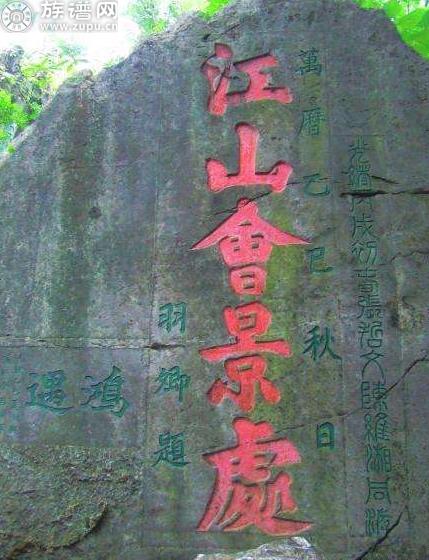 族谱网
www.zupu.cn
光緒丙戌初春張哲文陳維湘同游
萬曆乙巳秋日
江山會景處
羽卿題
鴻遇